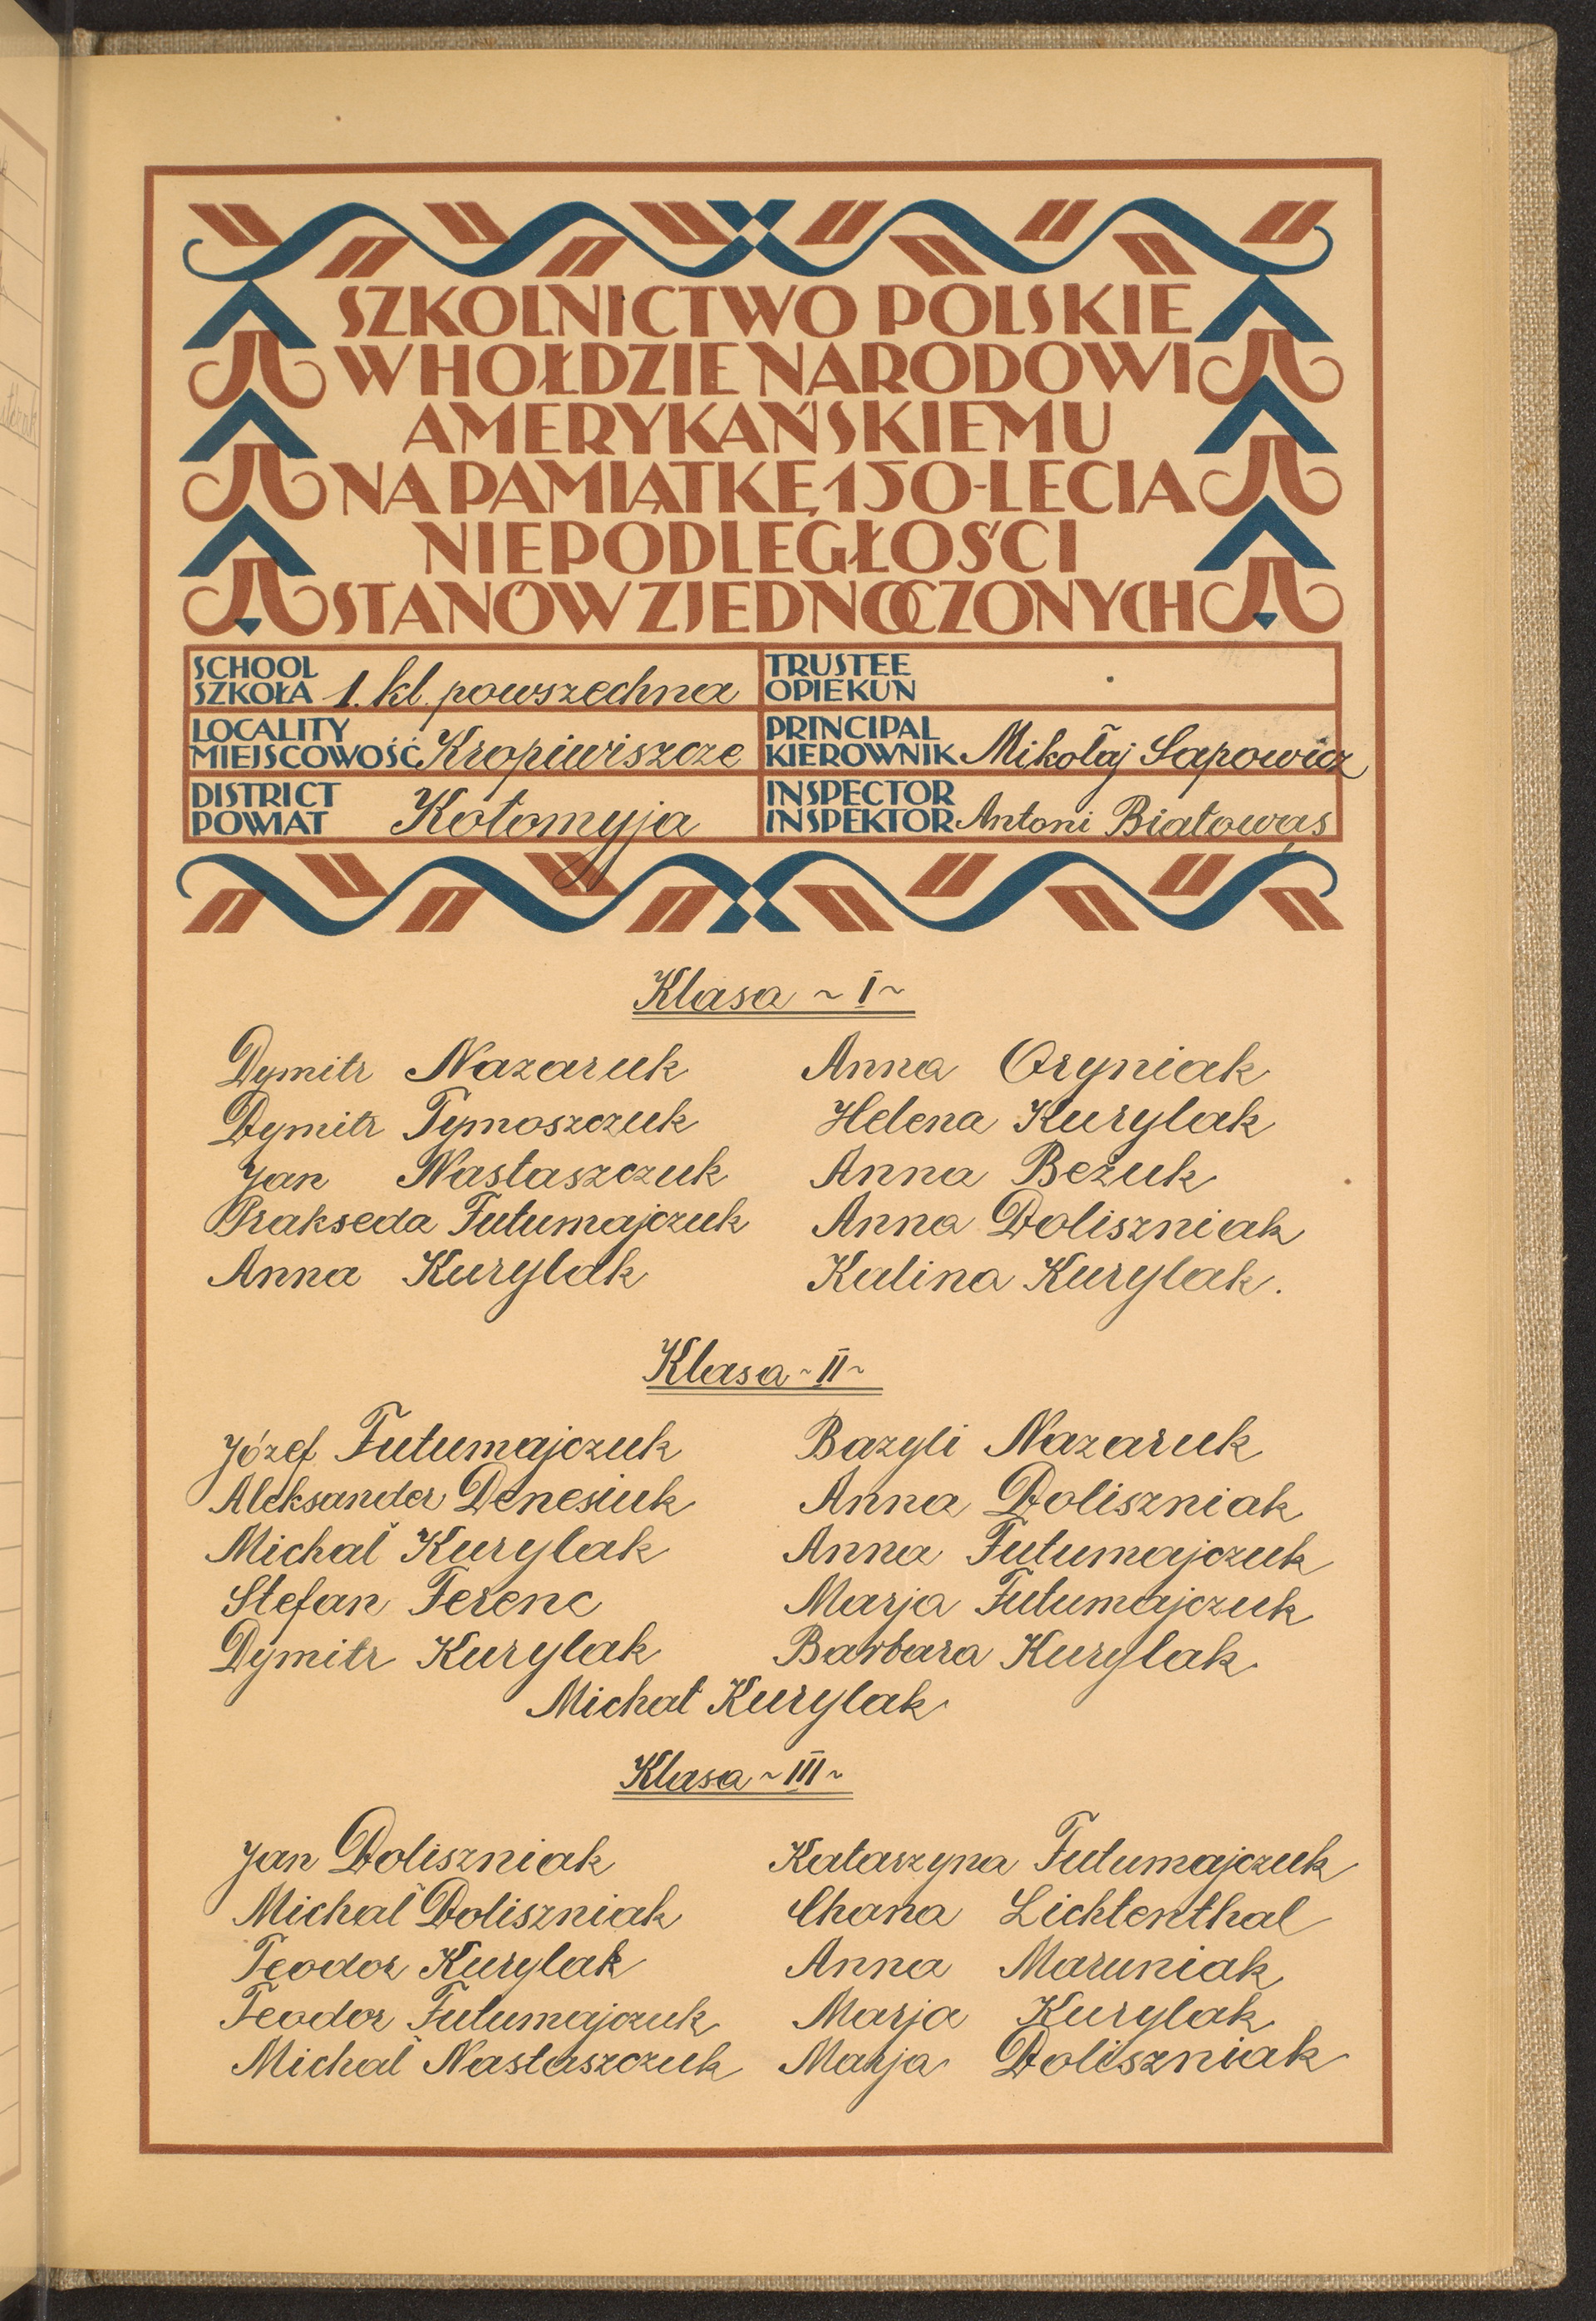 SZKOLNICTWO POLSKIE
W HOŁDZIE NARODOWI
AMERYKAŃSKIEMU
NA PAMIĄTKĘ 150-LECIA
NIEPODLEGŁOŚCI
STANÓW ZJEDNOCZONYCH
SCHOOL
SZKOŁA 1. kl. powszechna
TRUSTEE
OPIEKUN
LOCALITY
MIEJSCOWOŚĆ Kropiwiszcze
PRINCIPAL
KIEROWNIK Mikołaj Sapowicz
DISTRICT
POWIAT Kołomyja
INSPECTOR
INSPEKTOR Antoni Białowąs
Klasa ~ I ~
Dymitr Nazaruk
Dymitr Tymoszczuk
Jan Nastaszczuk
Prakseda Futumajczuk
Anna Kurylak
Anna Oryniak
Helena Kurylak
Anna Beżuk
Anna Doliszniak
Kalina Kurylak.
Klasa ~ II ~
Józef Futumajczuk
Aleksander Denesiuk
Michał Kurylak
Stefan Ferenc
Dymitr Kurylak
Bazyli Nazaruk
Anna Doliszniak
Anna Futumajczuk
Marja Futumajczuk
Barbara Kurylak
Michał Kurylak
Klasa ~ III ~
Jan Doliszniak
Michał Doliszniak
Teodor Kurylak
Teodor Futumajczuk
Michał Nastaszczuk
Katarzyna Futumajczuk
Chana Lichtenthal
Anna Maruniak
Marja Kurylak
Marja Doliszniak